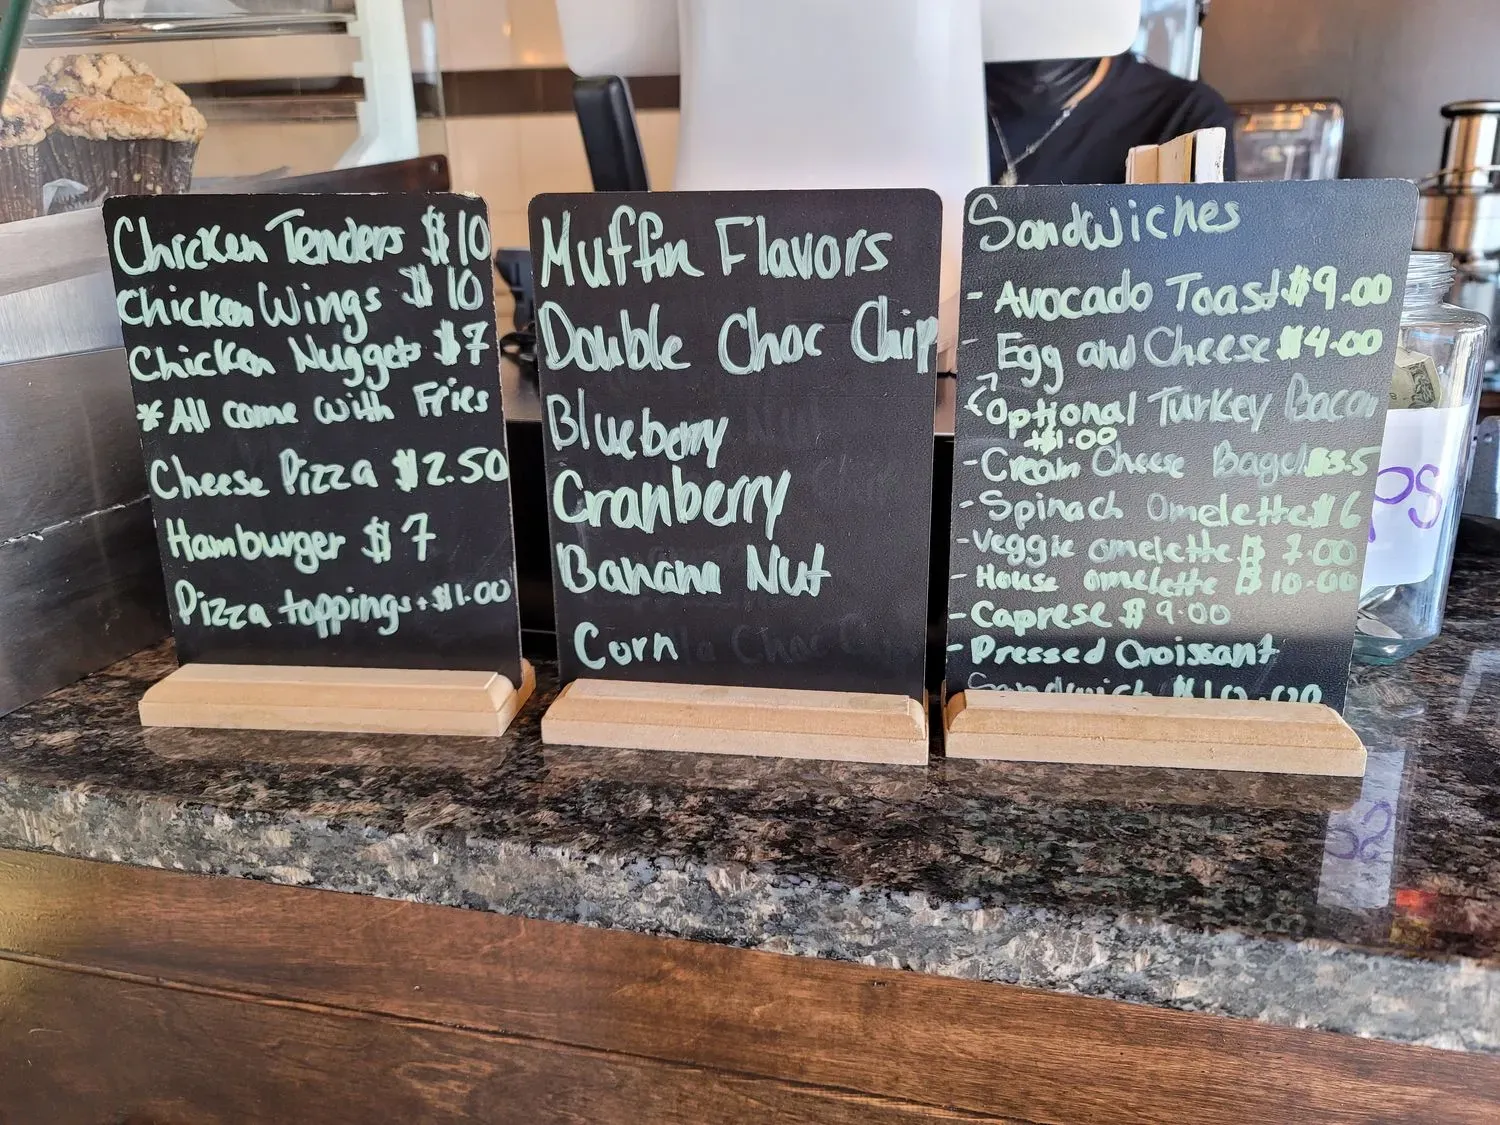 Chicken Tenders $10
Chicken Wings $10
Chicken Nuggets $7
* All come with Fries
Cheese Pizza $2.50
Hamburger $7
Pizza toppings + $1.00
Muffin Flavors
Double Choc Chip
Blueberry
Cranberry
Banana Nut
Corn
Sandwiches
- Avocado Toast $9.00
- Egg and Cheese $4.00
Optional Turkey Bacon
+$1.00
- Cream Cheese Bagel $3.5
- Spinach Omelette $6
- Veggie omelette $7.00
- House omelette $10.00
- Caprese $9.00
- Pressed Croissant
Sandwich $10.00
PS